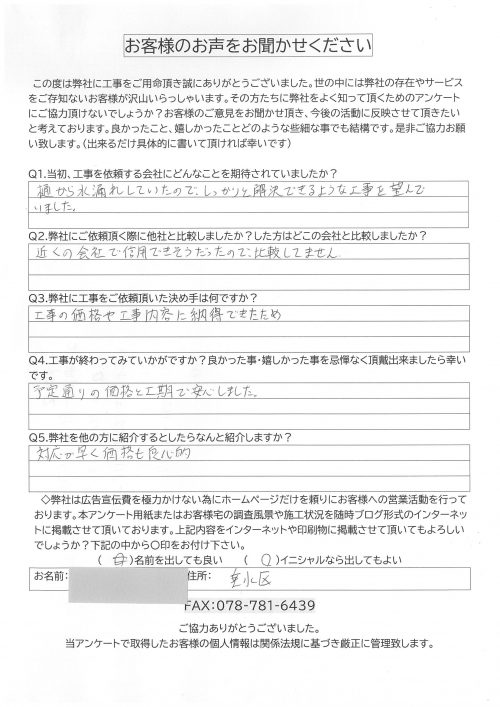 お客様のお声をお聞かせください
この度は弊社に工事をご用命頂き誠にありがとうございました。世の中には弊社の存在やサービス
をご存知ないお客様が沢山いらっしゃいます。その方たちに弊社をよく知って頂くためのアンケート
にご協力頂けないでしょうか？お客様のご意見をお聞かせ頂き、今後の活動に反映させて頂きたい
と考えております。良かったこと、嬉しかったことどのような些細な事でも結構です。是非ご協力お願
い致します。（出来るだけ具体的に書いて頂ければ幸いです）
Q1.当初、工事を依頼する会社にどんなことを期待されていましたか？
樋から水漏れしていたので、しっかりと解決できるような工事を望んで
いました。
Q2.弊社にご依頼頂く際に他社と比較しましたか？した方はどこの会社と比較しましたか？
近くの会社で信用できそうだったので、比較してません
Q3.弊社に工事をご依頼頂いた決め手は何ですか？
工事の価格や工事内容に納得できたため
Q4.工事が終わってみていかがですか？良かった事・嬉しかった事を忌憚なく頂戴出来ましたら幸い
です。
予定通りの価格と工期で安心しました。
Q5.弊社を他の方に紹介するとしたらなんと紹介しますか？
対応が早く価格も良心的
◇弊社は広告宣伝費を極力かけない為にホームページだけを頼りにお客様への営業活動を行って
おります。本アンケート用紙またはお客様宅の調査風景や施工状況を随時ブログ形式のインターネッ
トに掲載させて頂いております。上記内容をインターネットや印刷物に掲載させて頂いてもよろしい
でしょうか？下記の中から〇印をお付け下さい。
（ ）名前を出しても良い （ ○ ）イニシャルなら出してもよい
お名前: 住所: 垂水区
FAX:078-781-6439
ご協力ありがとうございました。
当アンケートで取得したお客様の個人情報は関係法規に基づき厳正に管理致します。